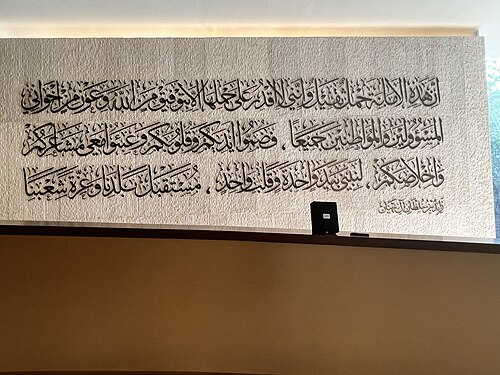 إن هذه الأمانة حمل ثقيل وإنني لا أقدر على حملها إلا بتوفيق من الله وعون من إخواني
المسؤولين والمواطنين جميعا ، فضعوا أيديكم وقلوبكم وعبئوا معي مشاعركم
وإخلاصكم ، لنبني بيد واحدة وقلب واحد ، مستقبل بلادنا وعزة شعبنا
زايد بن سلطان آل نهيان